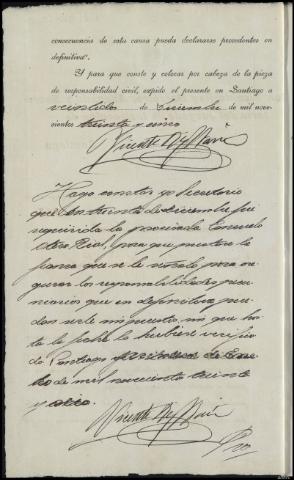 consecuencia de esta causa pueda declararse procedentes en
definitiva".
Y para que conste y colocar por cabeza de la pieza
de responsabilidad civil, expido el presente en Santiago a
veintidos de Diciembre de mil nove-
cientos treinta y cinco
Hago constar yo Secretario
que con treinta de diciembre fué
requerida la procesada Consuelo
para que prestara la
fianza que se le señaló para ase-
gurar las responsabilidades pecu-
niarias que en definitiva pue-
dan serle impuestas, sin que has-
ta la fecha lo hubiera verifica-
do. Santiago de Ene-
ro de mil novecientos treinta
y seis.